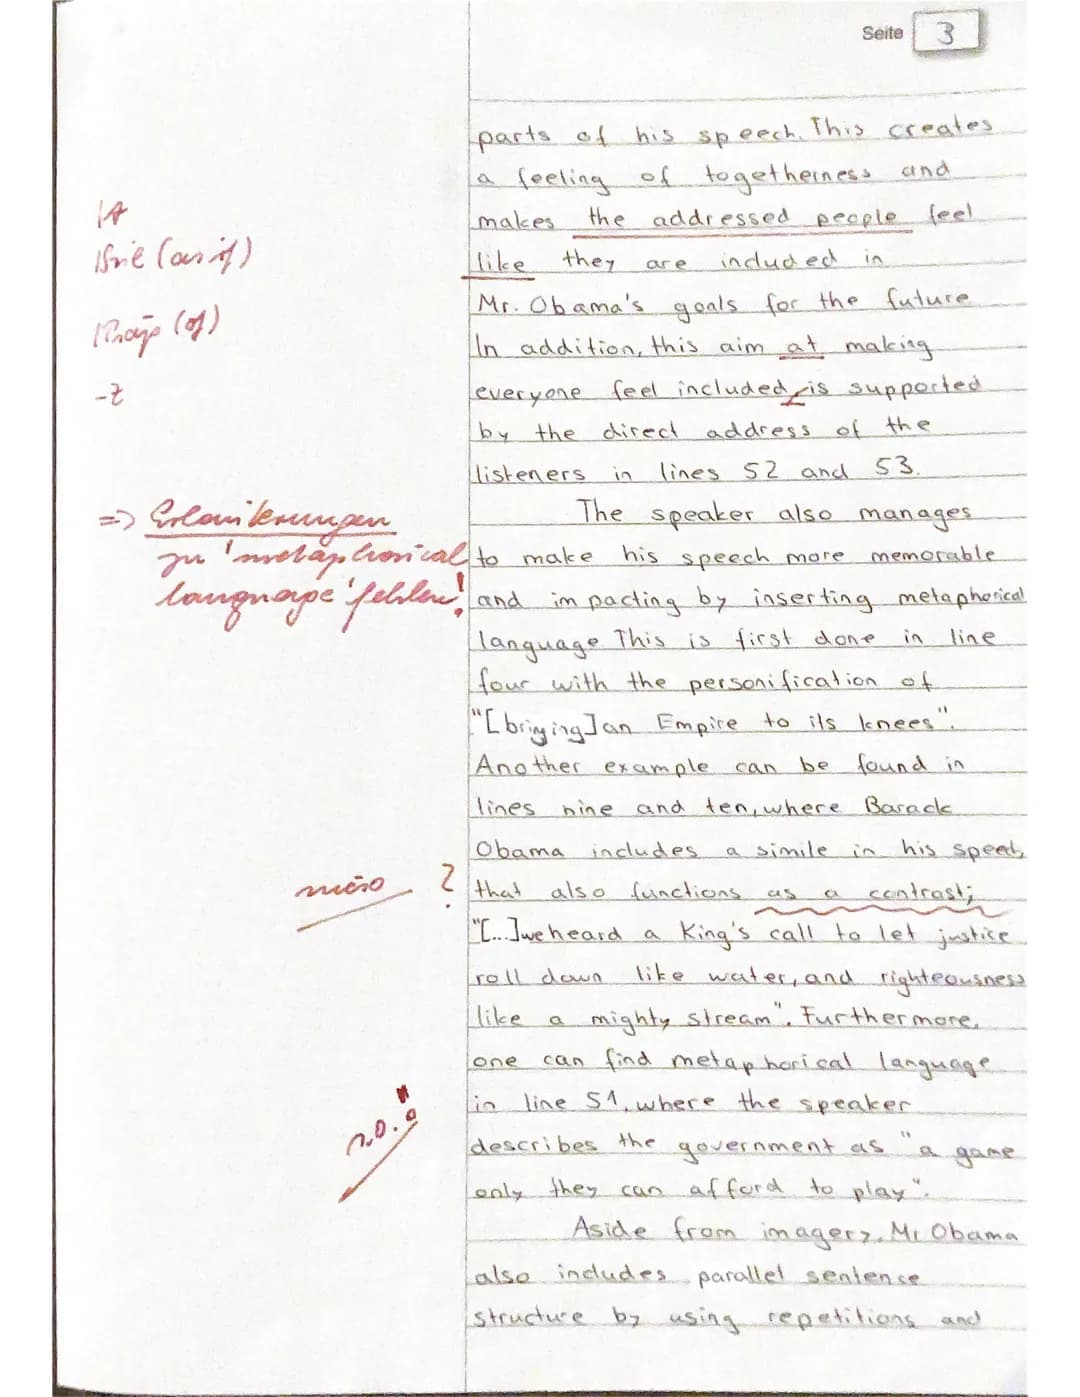 Seite 3
parts of his speech. This creates
a feeling of togetherness and
makes the addressed people feel
like they are included in
Mr. Obama's goals for the future
In addition, this aim at making
everyone feel included is supported
by the direct address of the
listeners in lines 52 and 53.
The speaker also manages
to make his speech more memorable
and impacting by inserting metaphorical
language. This is first done in line
four with the personification of
"[bringing] an Empire to its knees".
Another example can be found in
lines nine and ten, where Barack
Obama includes a simile in his speech,
that also functions as a contrast;
"[...] we heard a King's call to let justice
roll down like water, and righteousness
like a mighty stream". Furthermore,
one can find metaphorical language
in line 51, where the speaker
describes the government as "a game
only they can afford to play".
Aside from imagery, Mr Obama
also includes parallel sentence
structure by using repetitions and
1A
(as if)
(of)
-Z
=> Erläuterungen
zu 'metaphorical
language' fehlen!
wieso ?
s.o.!